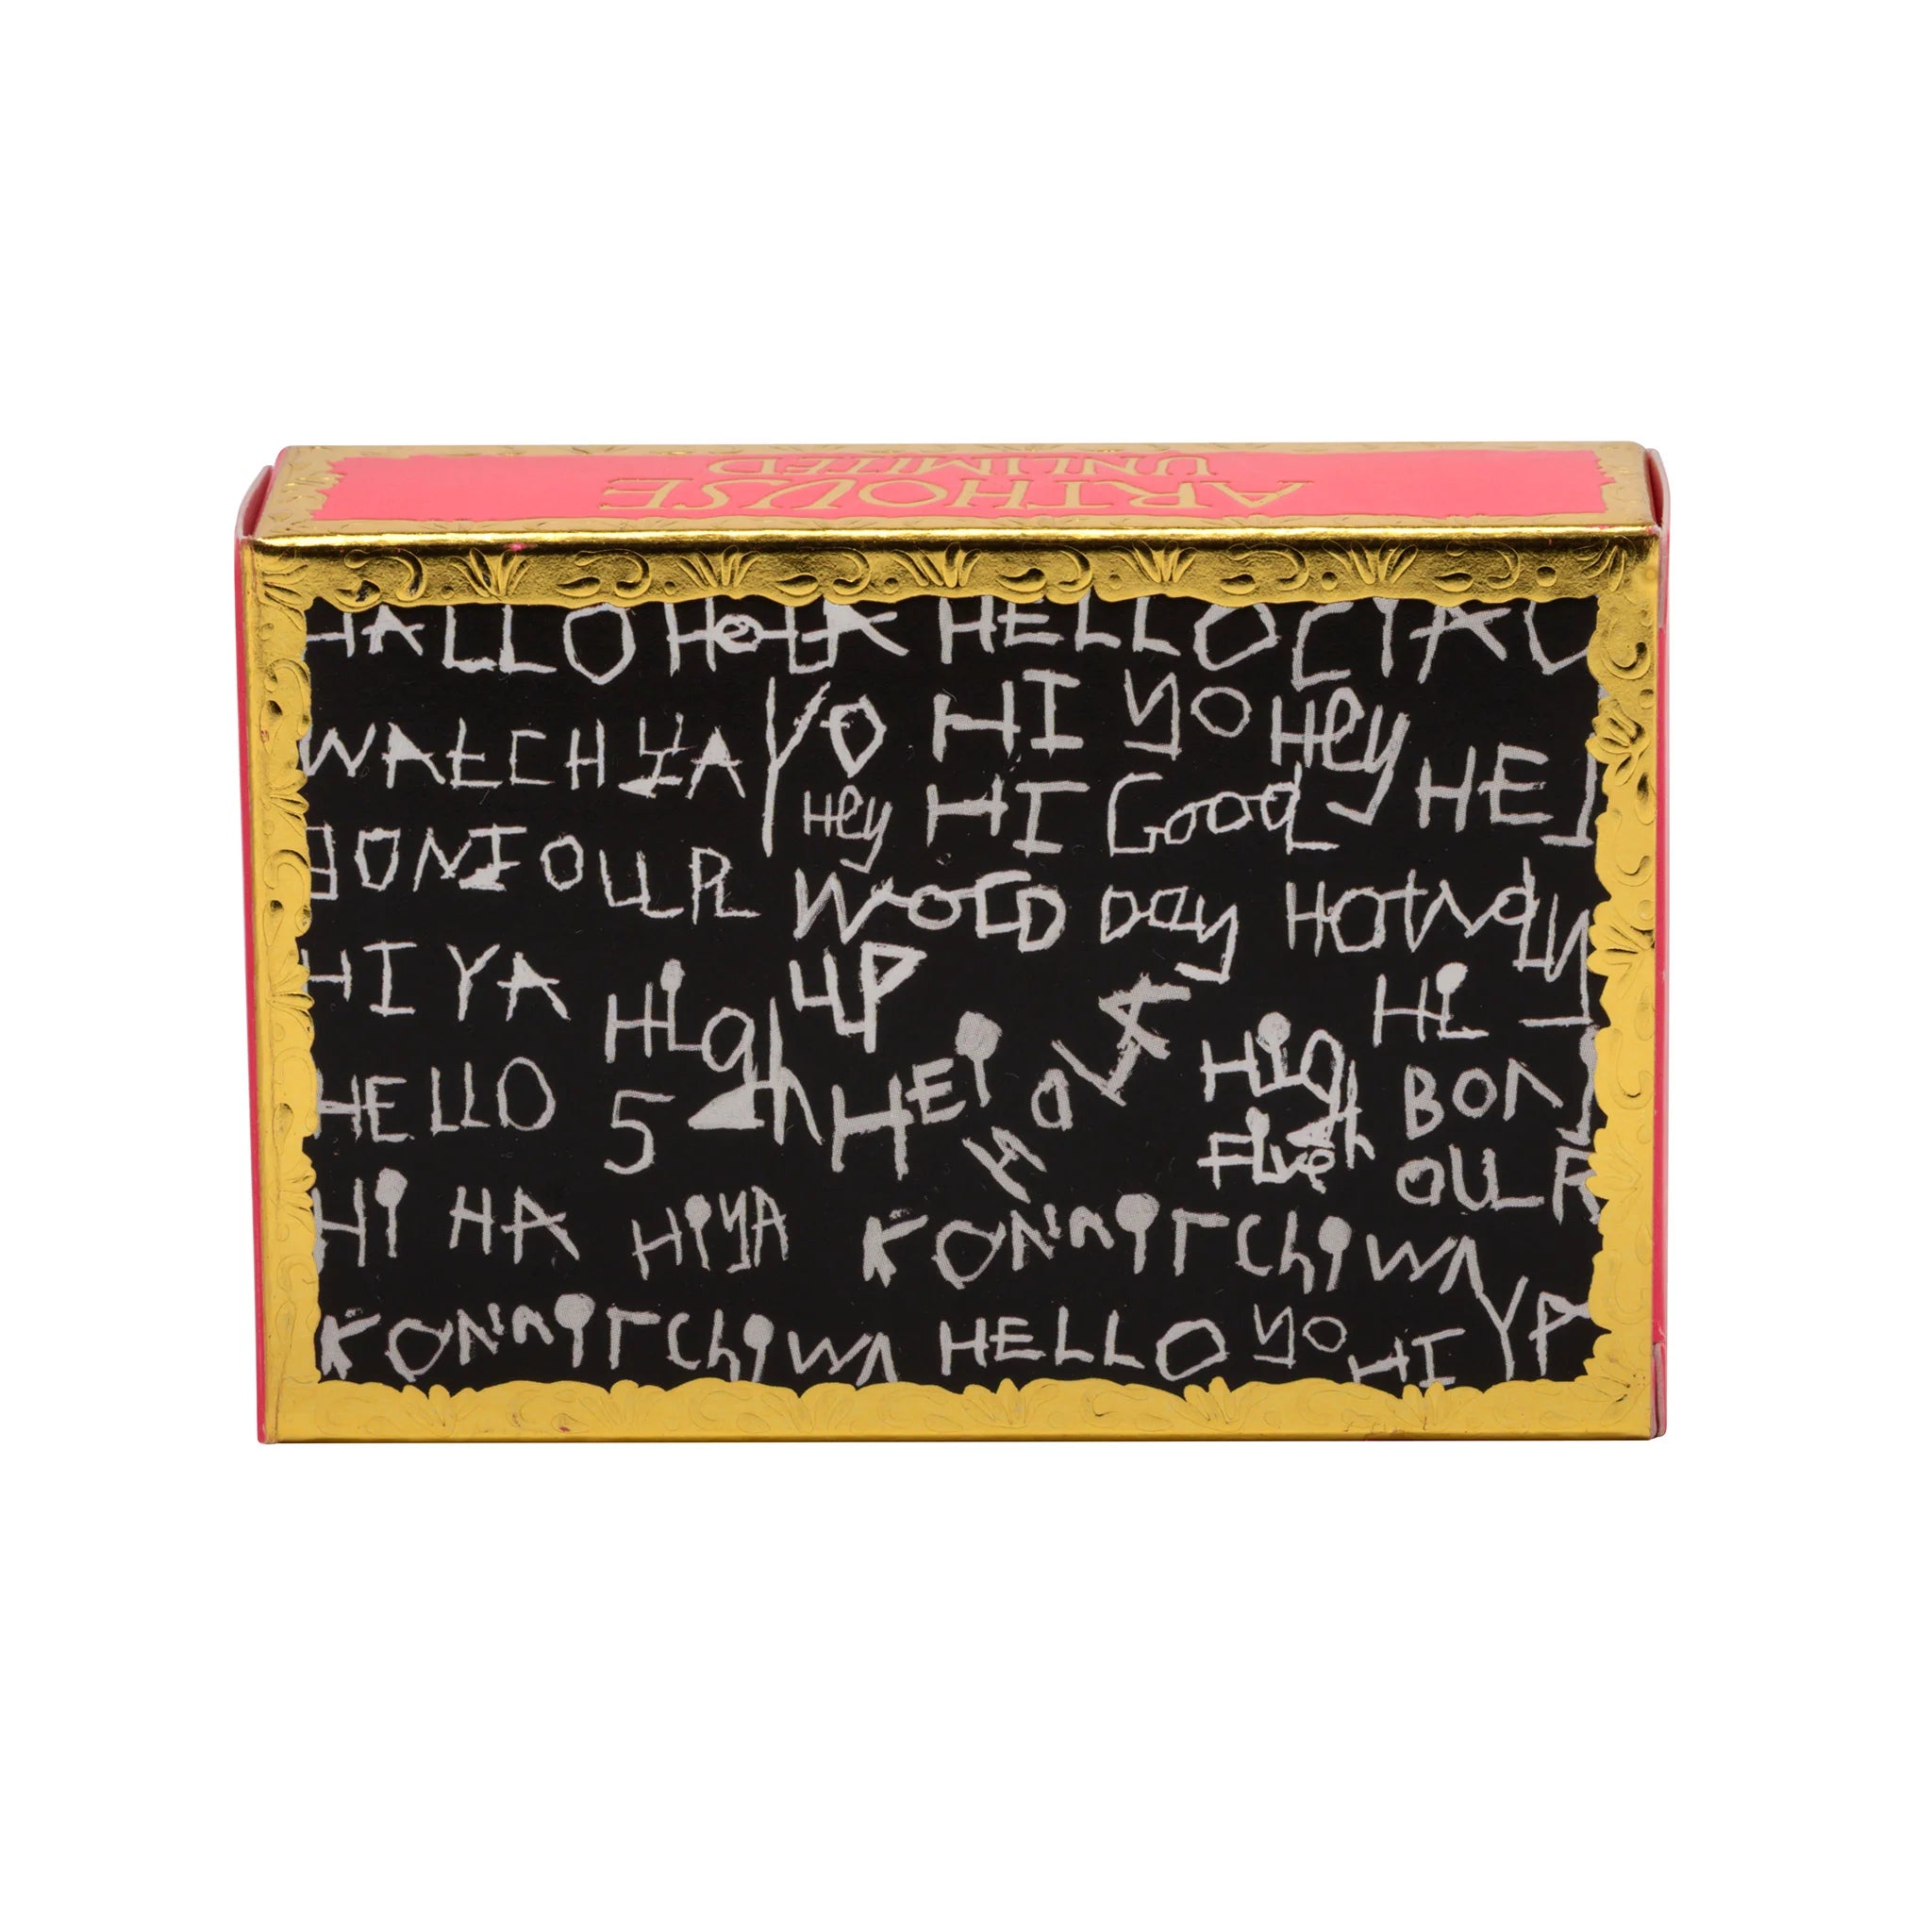 ARTHOUSE
UNLIMITED
HALLO HOLA HELLO CIAO
WATCH YA YO HI YO Hey HE
Hey HI Good
BONJOUR WORD Day HOWdy
HI YA High UP Hi
HELLO 5 HEi HOLA High Five BON
OUR
Hi HA HiYA KONNiTChiWA
KONNiTChiWA HELLO yo HI YA